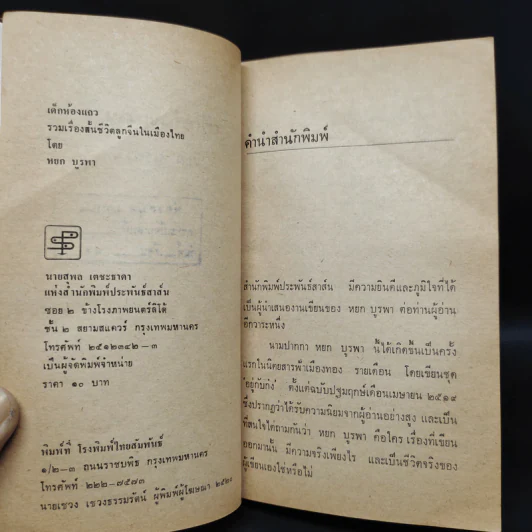 เด็กห้องแถว
รวมเรื่องสั้นชีวิตลูกจีนในเมืองไทย
โดย
หยก บูรพา
นายสุพล เตชะธาดา
แห่งสำนักพิมพ์ประพันธ์สาส์น
ซอย ๒ ข้างโรงภาพยนตร์ลิโด้
ชั้น ๒ สยามสแควร์ กรุงเทพมหานคร
โทรศัพท์ ๒๕๑๒๓๔๒-๓
เป็นผู้จัดพิมพ์จำหน่าย
ราคา ๑๐ บาท
พิมพ์ที่ โรงพิมพ์ไทยสัมพันธ์
๑/๒-๓ ถนนราชบพิธ กรุงเทพมหานคร
โทรศัพท์ ๒๒๒-๗๕๗๓
นายเชวง เชวงธรรมรัตน์ ผู้พิมพ์ผู้โฆษณา
คำนำสำนักพิมพ์
สำนักพิมพ์ประพันธ์สาส์น มีความยินดีและภูมิใจที่ได้
เป็นผู้นำเสนองานเขียนของ หยก บูรพา ต่อท่านผู้อ่าน
อีกวาระหนึ่ง
นามปากกา หยก บูรพา นี้ได้เกิดขึ้นเป็นครั้ง
แรกในนิตยสารฟ้าเมืองทอง รายเดือน โดยเขียนชุด
'อยู่กับก๋ง' ตั้งแต่ฉบับปฐมฤกษ์เดือนเมษายน ๒๕๑๙
ซึ่งปรากฏว่าได้รับความนิยมจากผู้อ่านอย่างสูง และเป็น
ที่สนใจใคร่ถามกันว่า หยก บูรพา คือใคร เรื่องที่เขียน
ออกมานั้น มีความจริงเพียงไร และเป็นชีวิตจริงของ
ผู้เขียนเองใช่หรือไม่